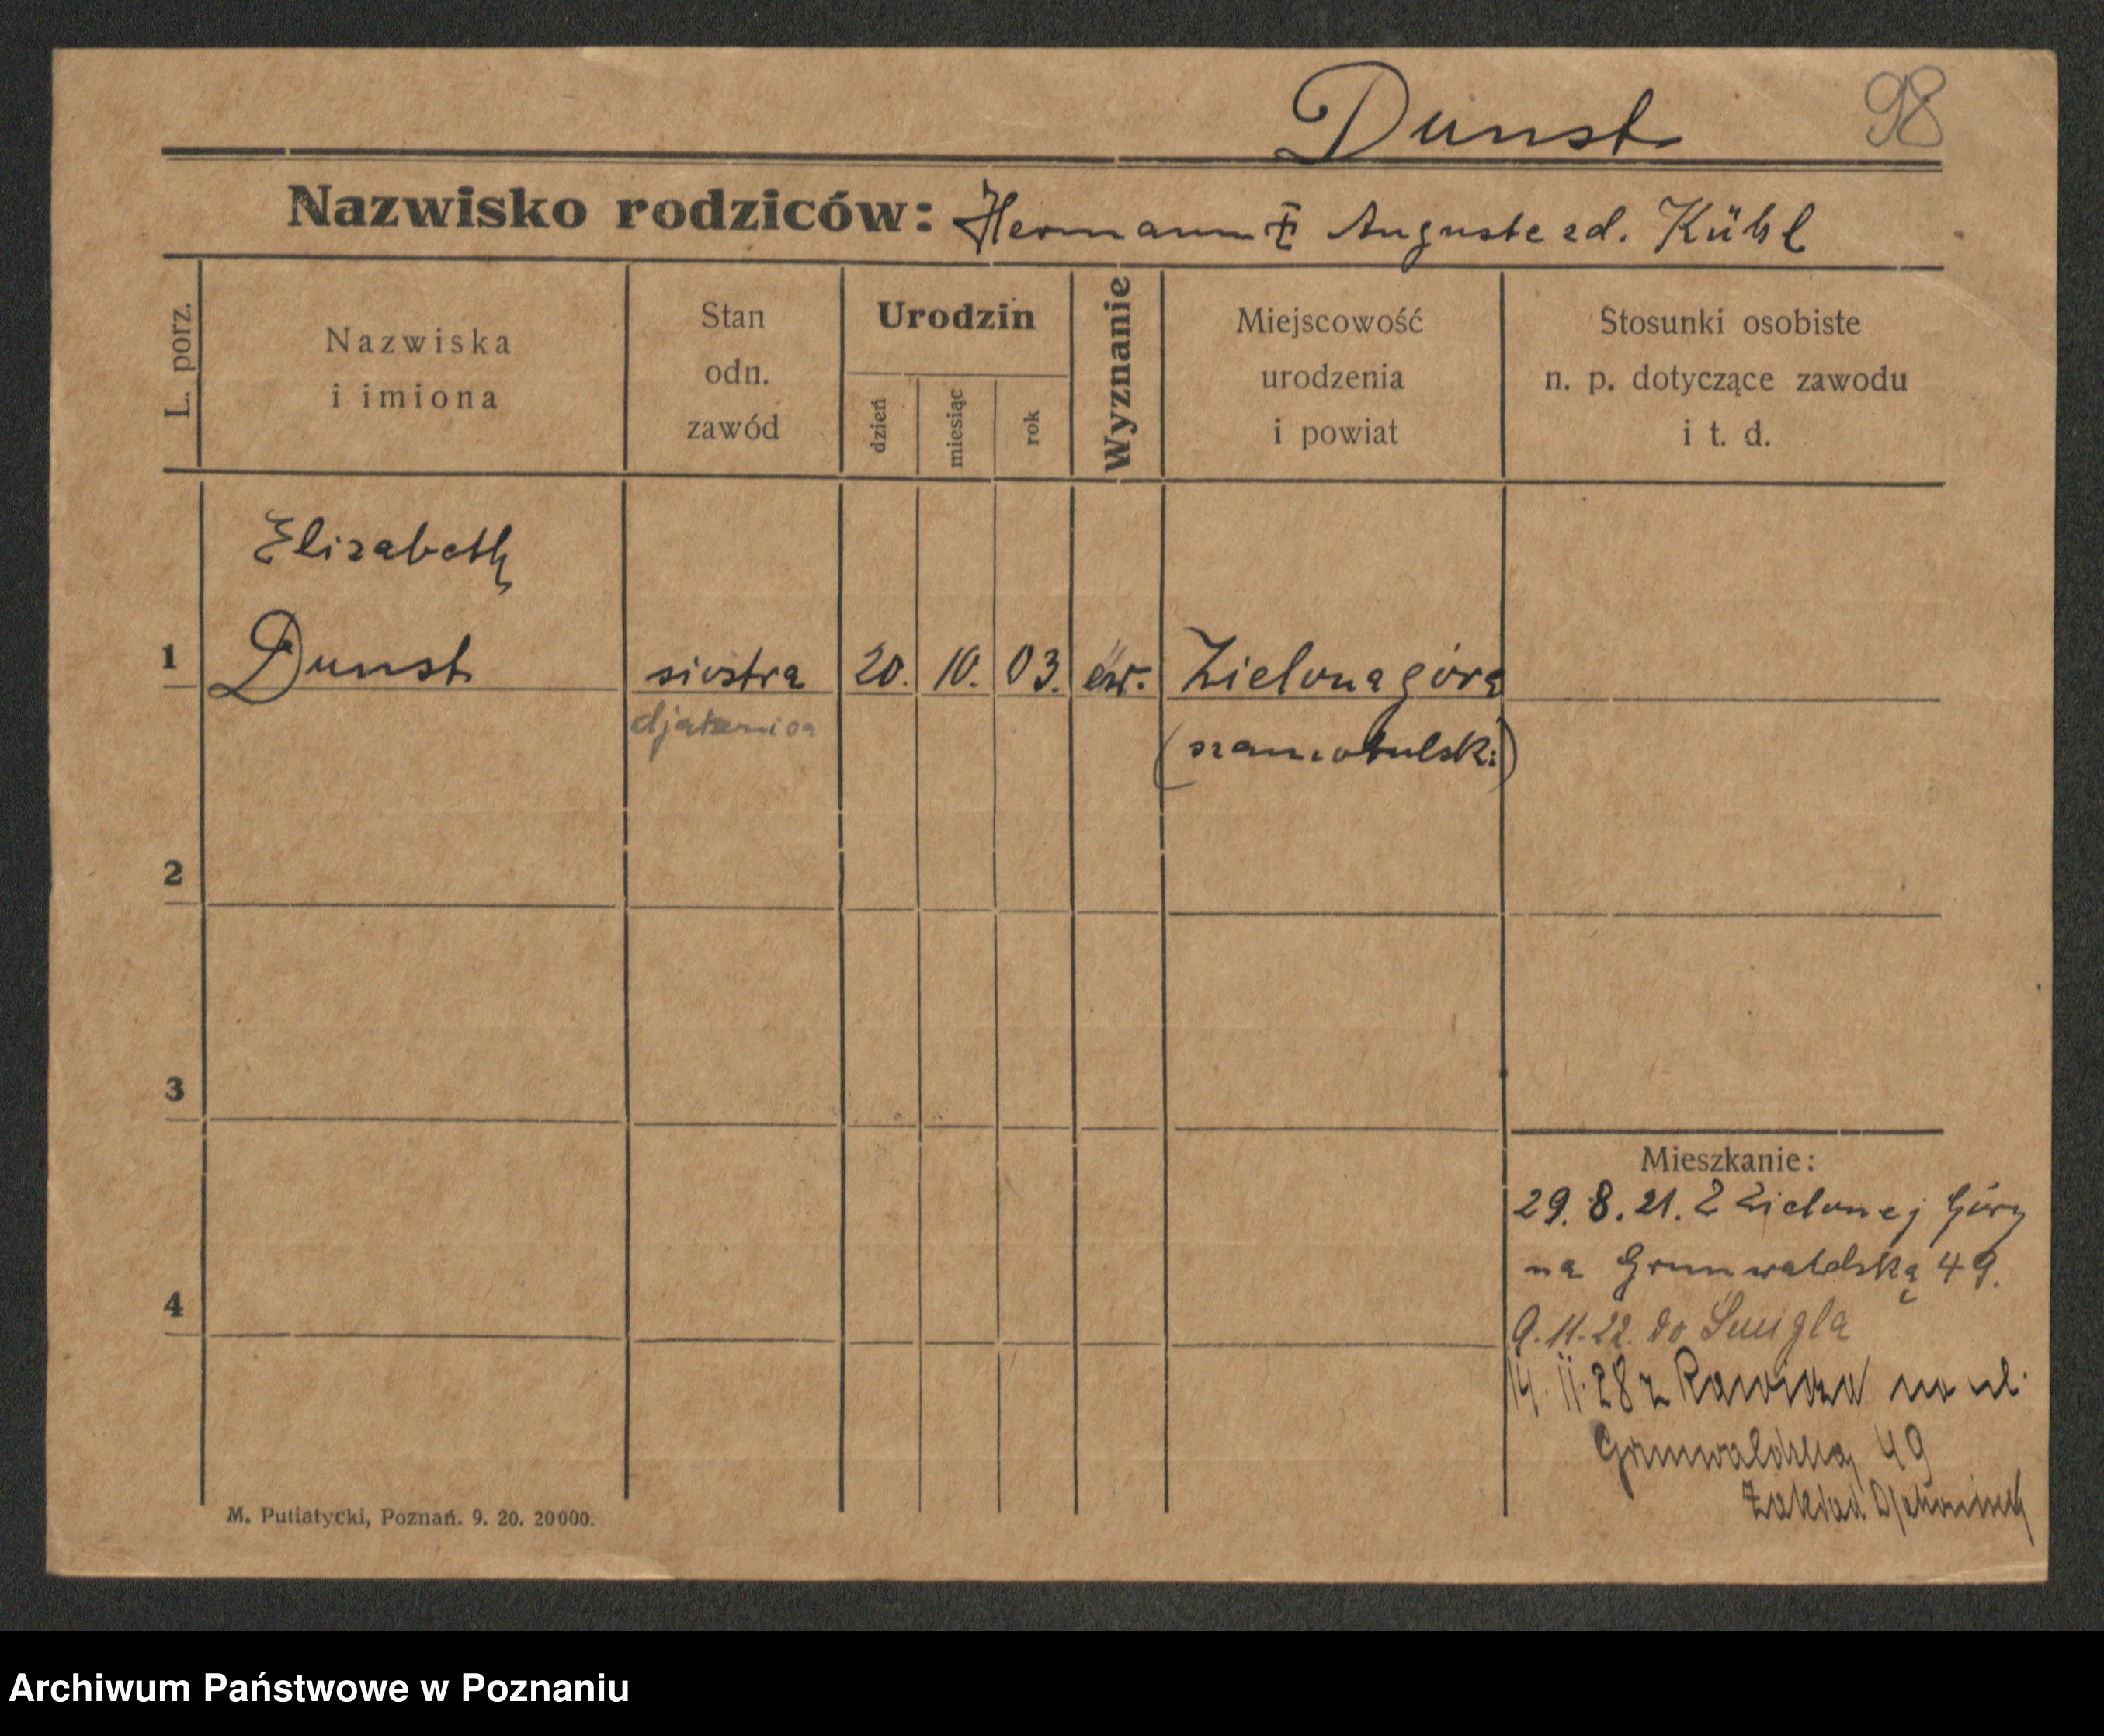 Dunst 98
Nazwisko rodziców: Hermann Auguste zd. Kühl
L. porz.
Nazwiska
i imiona
Stan
odn.
zawód
Urodzin
dzień
miesiąc
rok
Wyznanie
Miejscowość
urodzenia
i powiat
Stosunki osobiste
n. p. dotyczące zawodu
i t. d.
Elizabeth
1 Dunst siostra 20. 10. 03. ew. Zielonagóra
djakonisa
(szamotulski)
2
3
4
Mieszkanie:
29. 8. 21. Z Zielonej Góry
na Grunwaldską 49.
9. 11. 22. do Śmigla
14. II. 28 z Rawicza na ul.
Grunwaldską 49
Zakład
M. Putiatycki, Poznań. 9. 20. 20000.
Archiwum Państwowe w Poznaniu